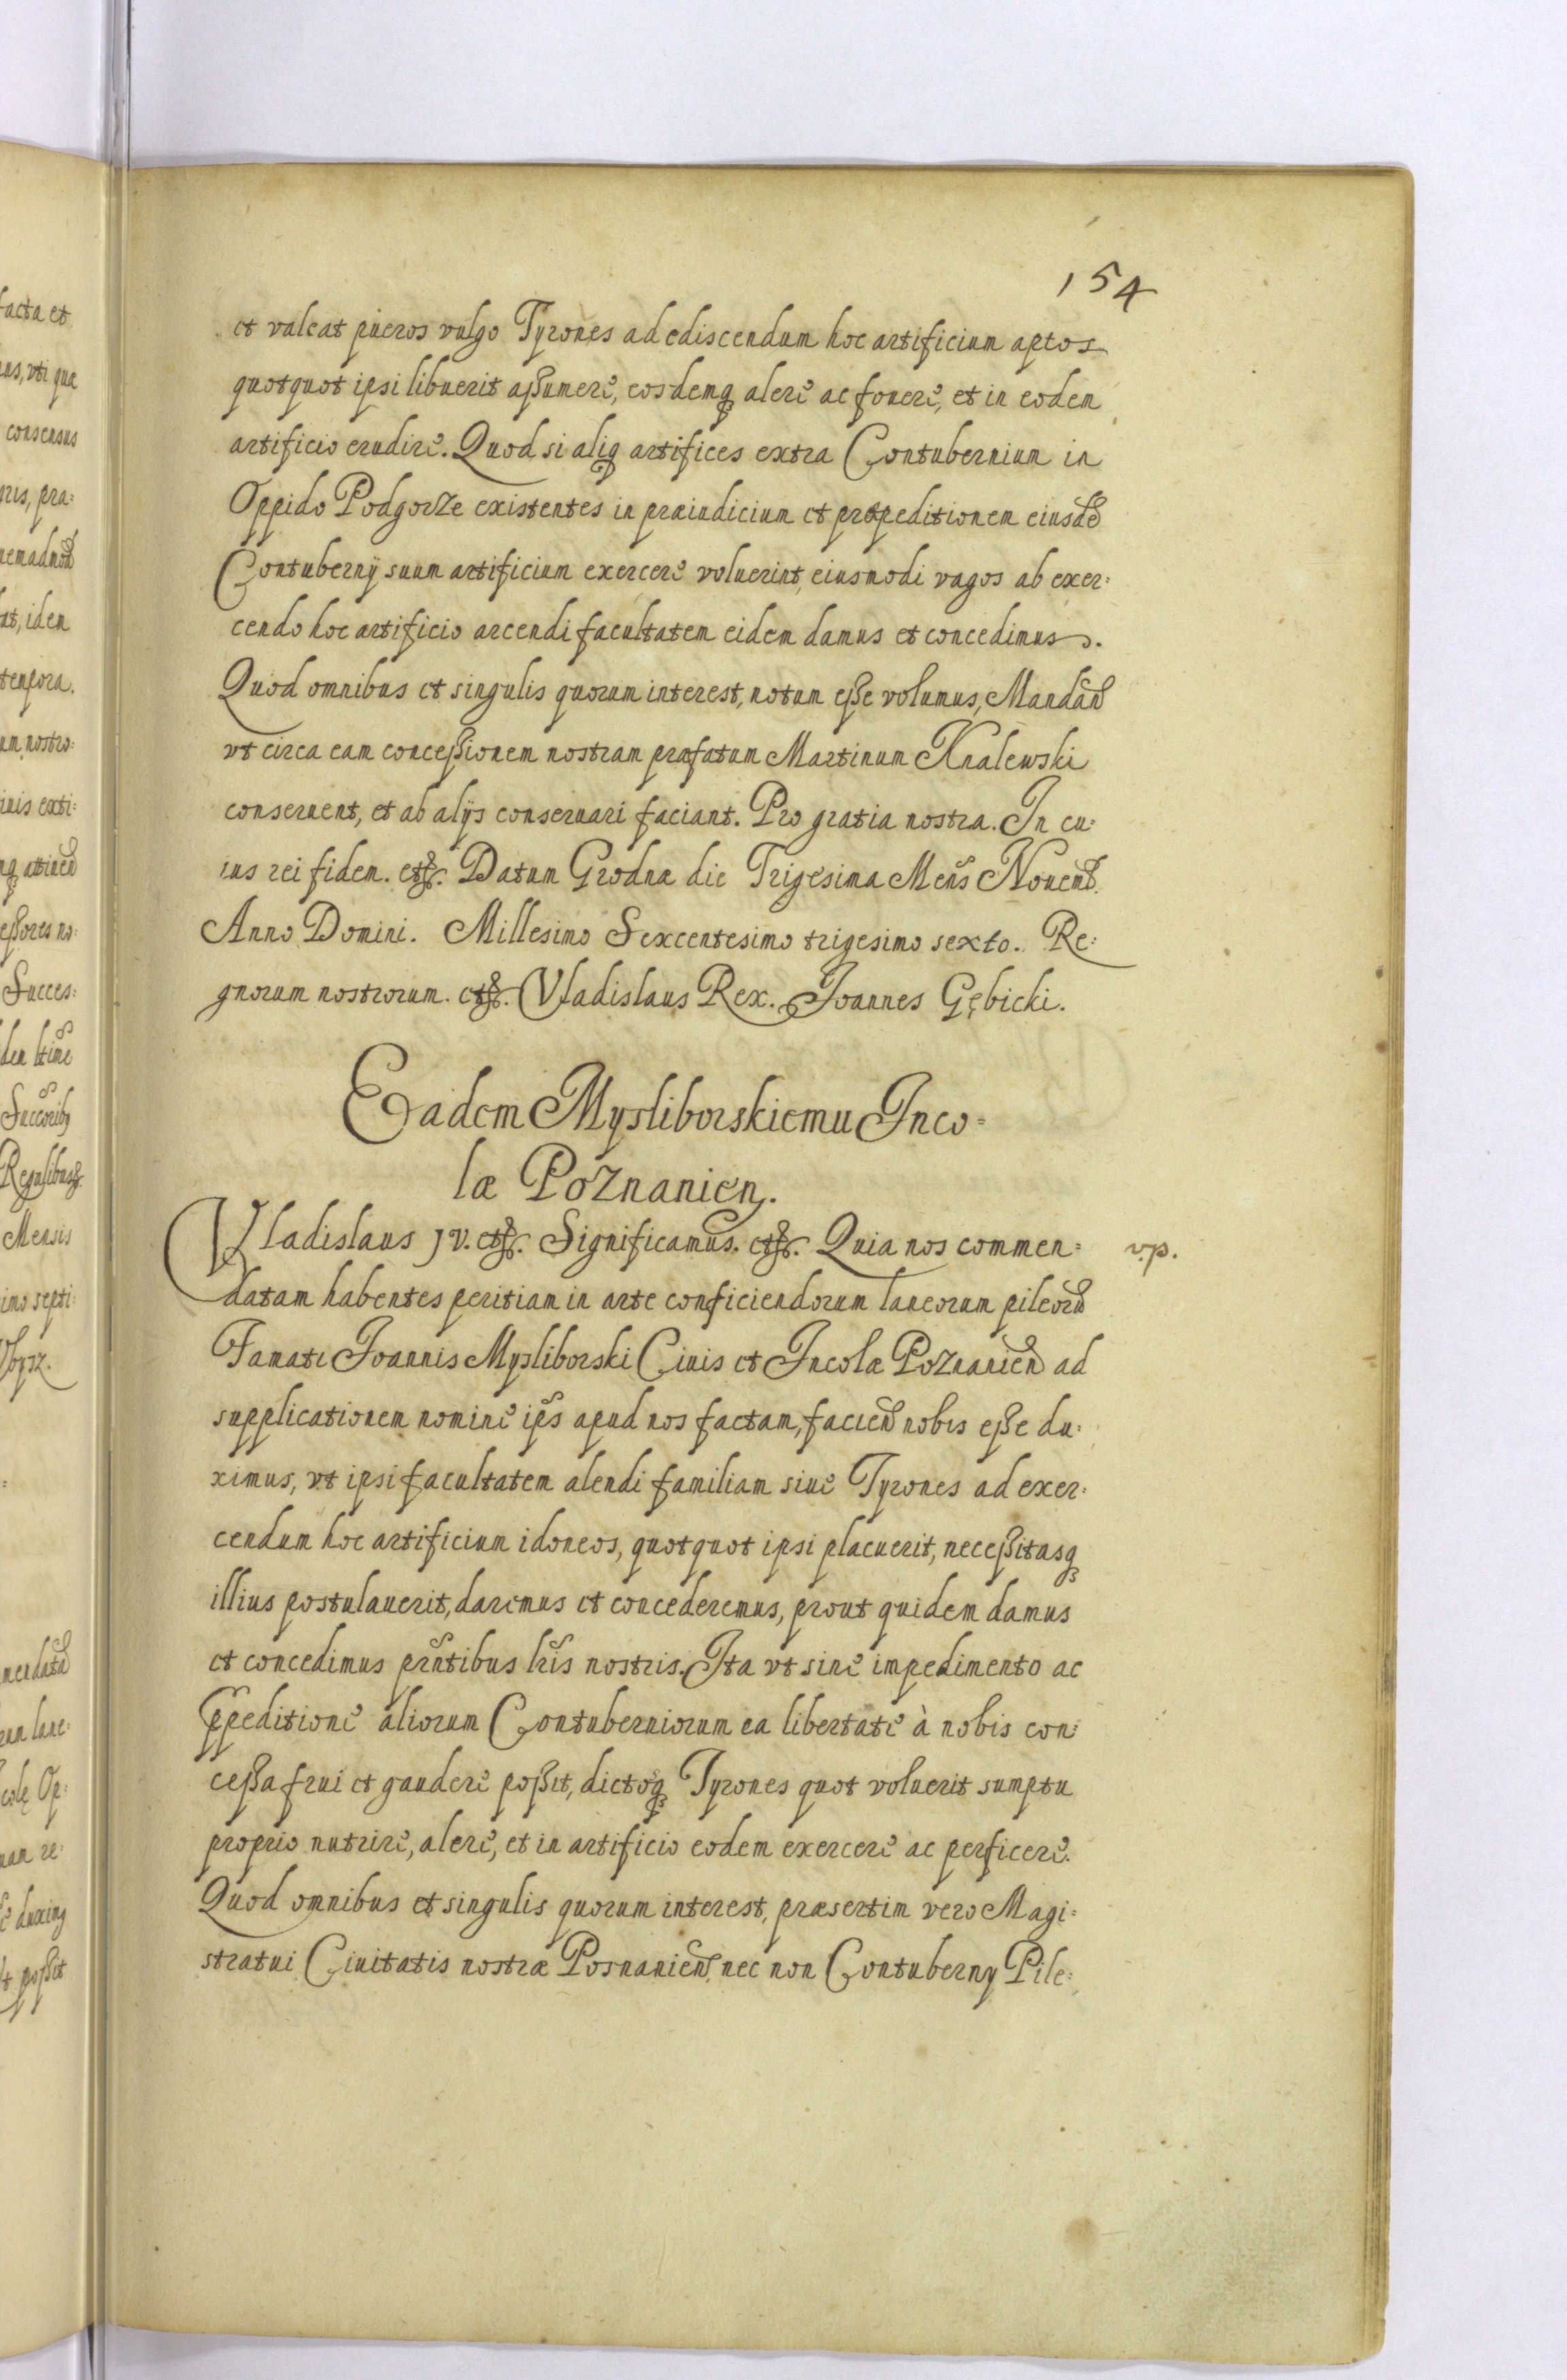 154
et valeat pueros vulgo Tyrones ad ediscendum hoc artificium aptos
quotquot ipsi libuerit aßumere, eosdemq alere ac fouere, et in eodem
artificio erudire. Quod si aliq artifices extra Contubernium in
Oppido Podgorze existentes in præiudicium et præpeditionem eiusde
Contubernÿ suum artificium exercere voluerint, eiusmodi vagos ab exer:
cendo hoc artificio arcendi facultatem eidem damus et concedimus.
Quod omnibus et singulis quorum interest, notum eße volumus, Mandan
vt circa eam conceßionem nostram præfatum Martinum Knalewski
conseruent, et ab alÿs conseruari faciant. Pro gratia nostra. In cu:
ius rei fidem. etc. Datum Grodnæ die Trigesima Mens Nouemb.
Anno Domini. Millesimo Sexcentesimo trigesimo sexto. Re:
gnorum nostrorum. etc. Vladislaus Rex. Joannes Gębicki.
Eadem Mysliborskiemu Inco=
læ Poznanien.
Vladislaus IV. etc. Significamus. etc. Quia nos commen=
v.p.
datam habentes peritiam in arte conficiendorum laneorum pileoru
Famati Joannis Mysliborski Ciuis et Incolæ Poznanien ad
supplicationem nomine ips apud nos factam, facien nobis eße du:
ximus, vt ipsi facultatem alendi familiam siue Tyrones ad exer:
cendum hoc artificium idoneos, quotquot ipsi placuerit, neceßitasq
illius postulauerit, daremus et concederemus, prout quidem damus
et concedimus prntibus lris nostris. Ita vt sine impedimento ac
ppeditione aliorum Contuberniorum ea libertate à nobis con:
ceßa frui et gaudere poßit, dictosq Tyrones quot voluerit sumptu
proprio nutrire, alere, et in artificio eodem exercere ac perficere.
Quod omnibus et singulis quorum interest, præsertim vero Magi:
stratui Ciuitatis nostræ Posnanien, nec non Contuberny Pile: